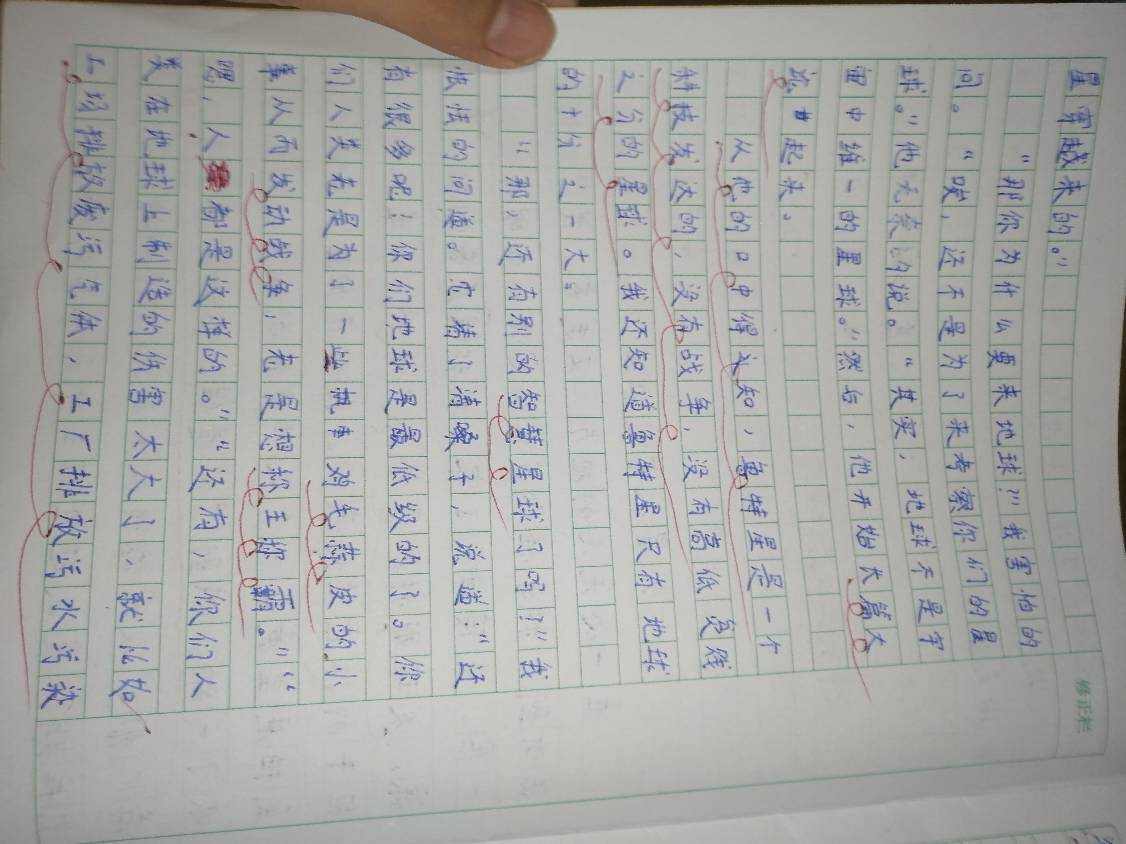 星穿越来的。”
“那你为什么要来地球?”我害怕的
问。“唉,还不是为了来考察你们的星
球。”他无奈的说。“其实,地球不是宇
宙中维一的星球。”然后,他开始长篇大
论起来。
从他的口中得之知,鲁特星是一个
科技发达的,没有战争,没有高低贵贱
之分的星球。我还知道鲁特星只有地球
的十分之一大。
“那,还有别的智慧星球了吗?”我
怯怯的问道。它清了清嗓子,说道:“还
有很多吧!你们地球是最低级的了。你
们人类老是为了一些鸡毛蒜皮的小
事从而发动战争,老是想称王称霸。”“
嗯,人都是这样的。”“还有,你们人
类在地球上制造的伤害太大了,就比如
工场排放废污气体,工厂排放污水污染
修正栏